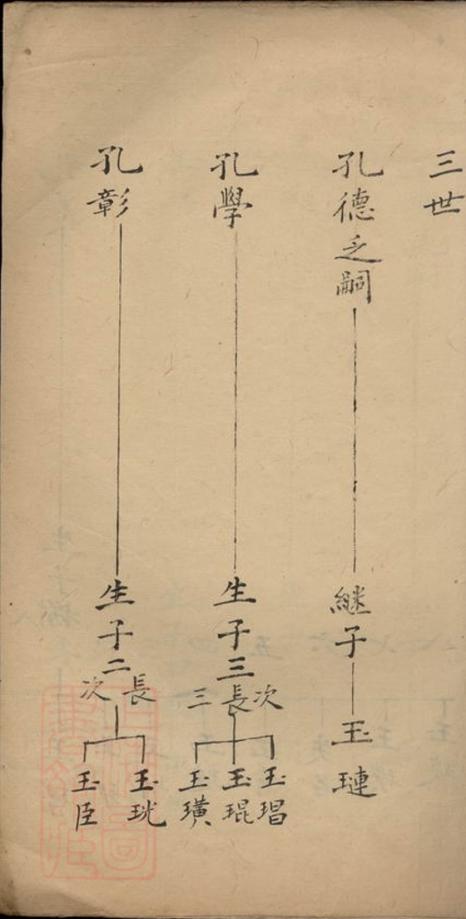 三世
孔德乏嗣
継子
玉璉
孔學
生子三
次 長 三
玉琩
玉琨
玉璜
孔彰
生子二
長 次
玉珖
玉臣